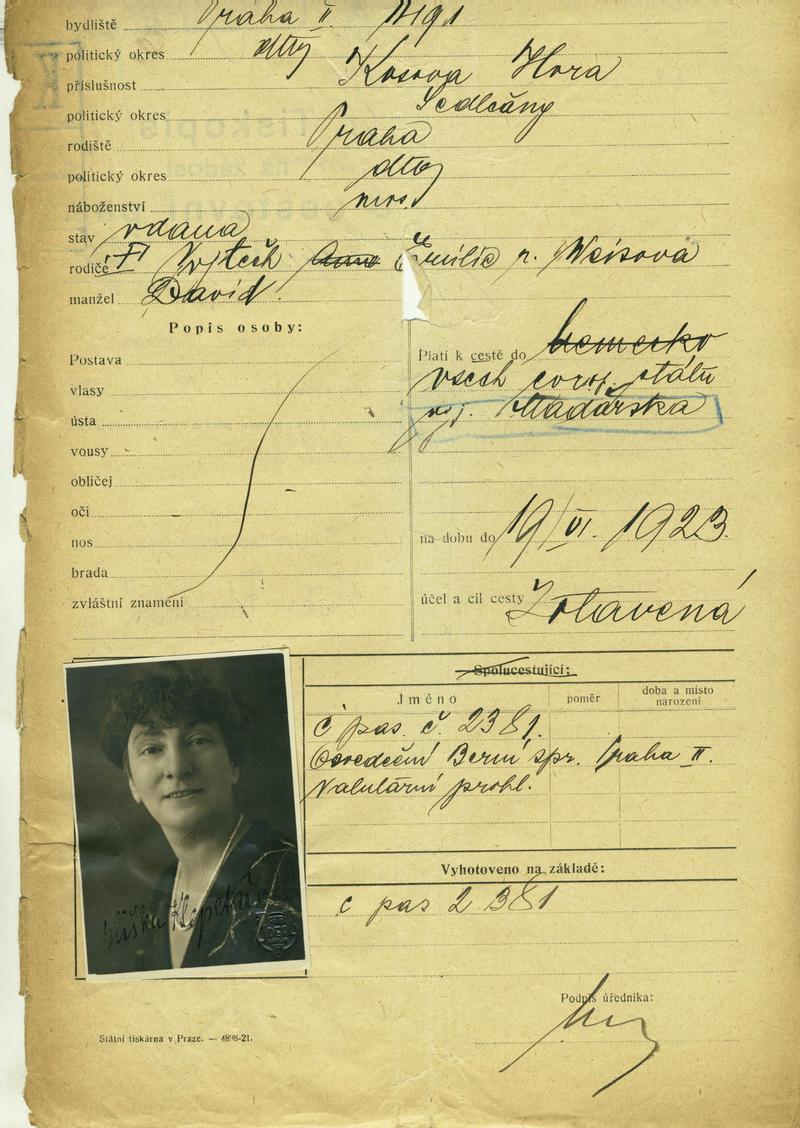 bydliště Praha II.
politický okres dtto
příslušnost Kosova Hora
politický okres Sedlčany
rodiště Praha
politický okres dtto
náboženství mos.
stav vdana
rodiče Vojtěch Emilie r. Weisova
manžel David.
Popis osoby:
Postava
vlasy
ústa
vousy
obličej
oči
nos
brada
zvláštní znamení
Platí k cestě do Německo
všech evrop. států
vyj. Maďarska
na dobu do 19/VI. 1923.
účel a cíl cesty Zotavená
Spolucestující:
Jméno poměr doba a místo narození
č pas. č. 2381.
Osvědčení Berní spr. Praha II.
Valutární prohl.
Vyhotoveno na základě:
č pas 2381
Klepetář
Podpis úředníka:
Státní tiskárna v Praze. —